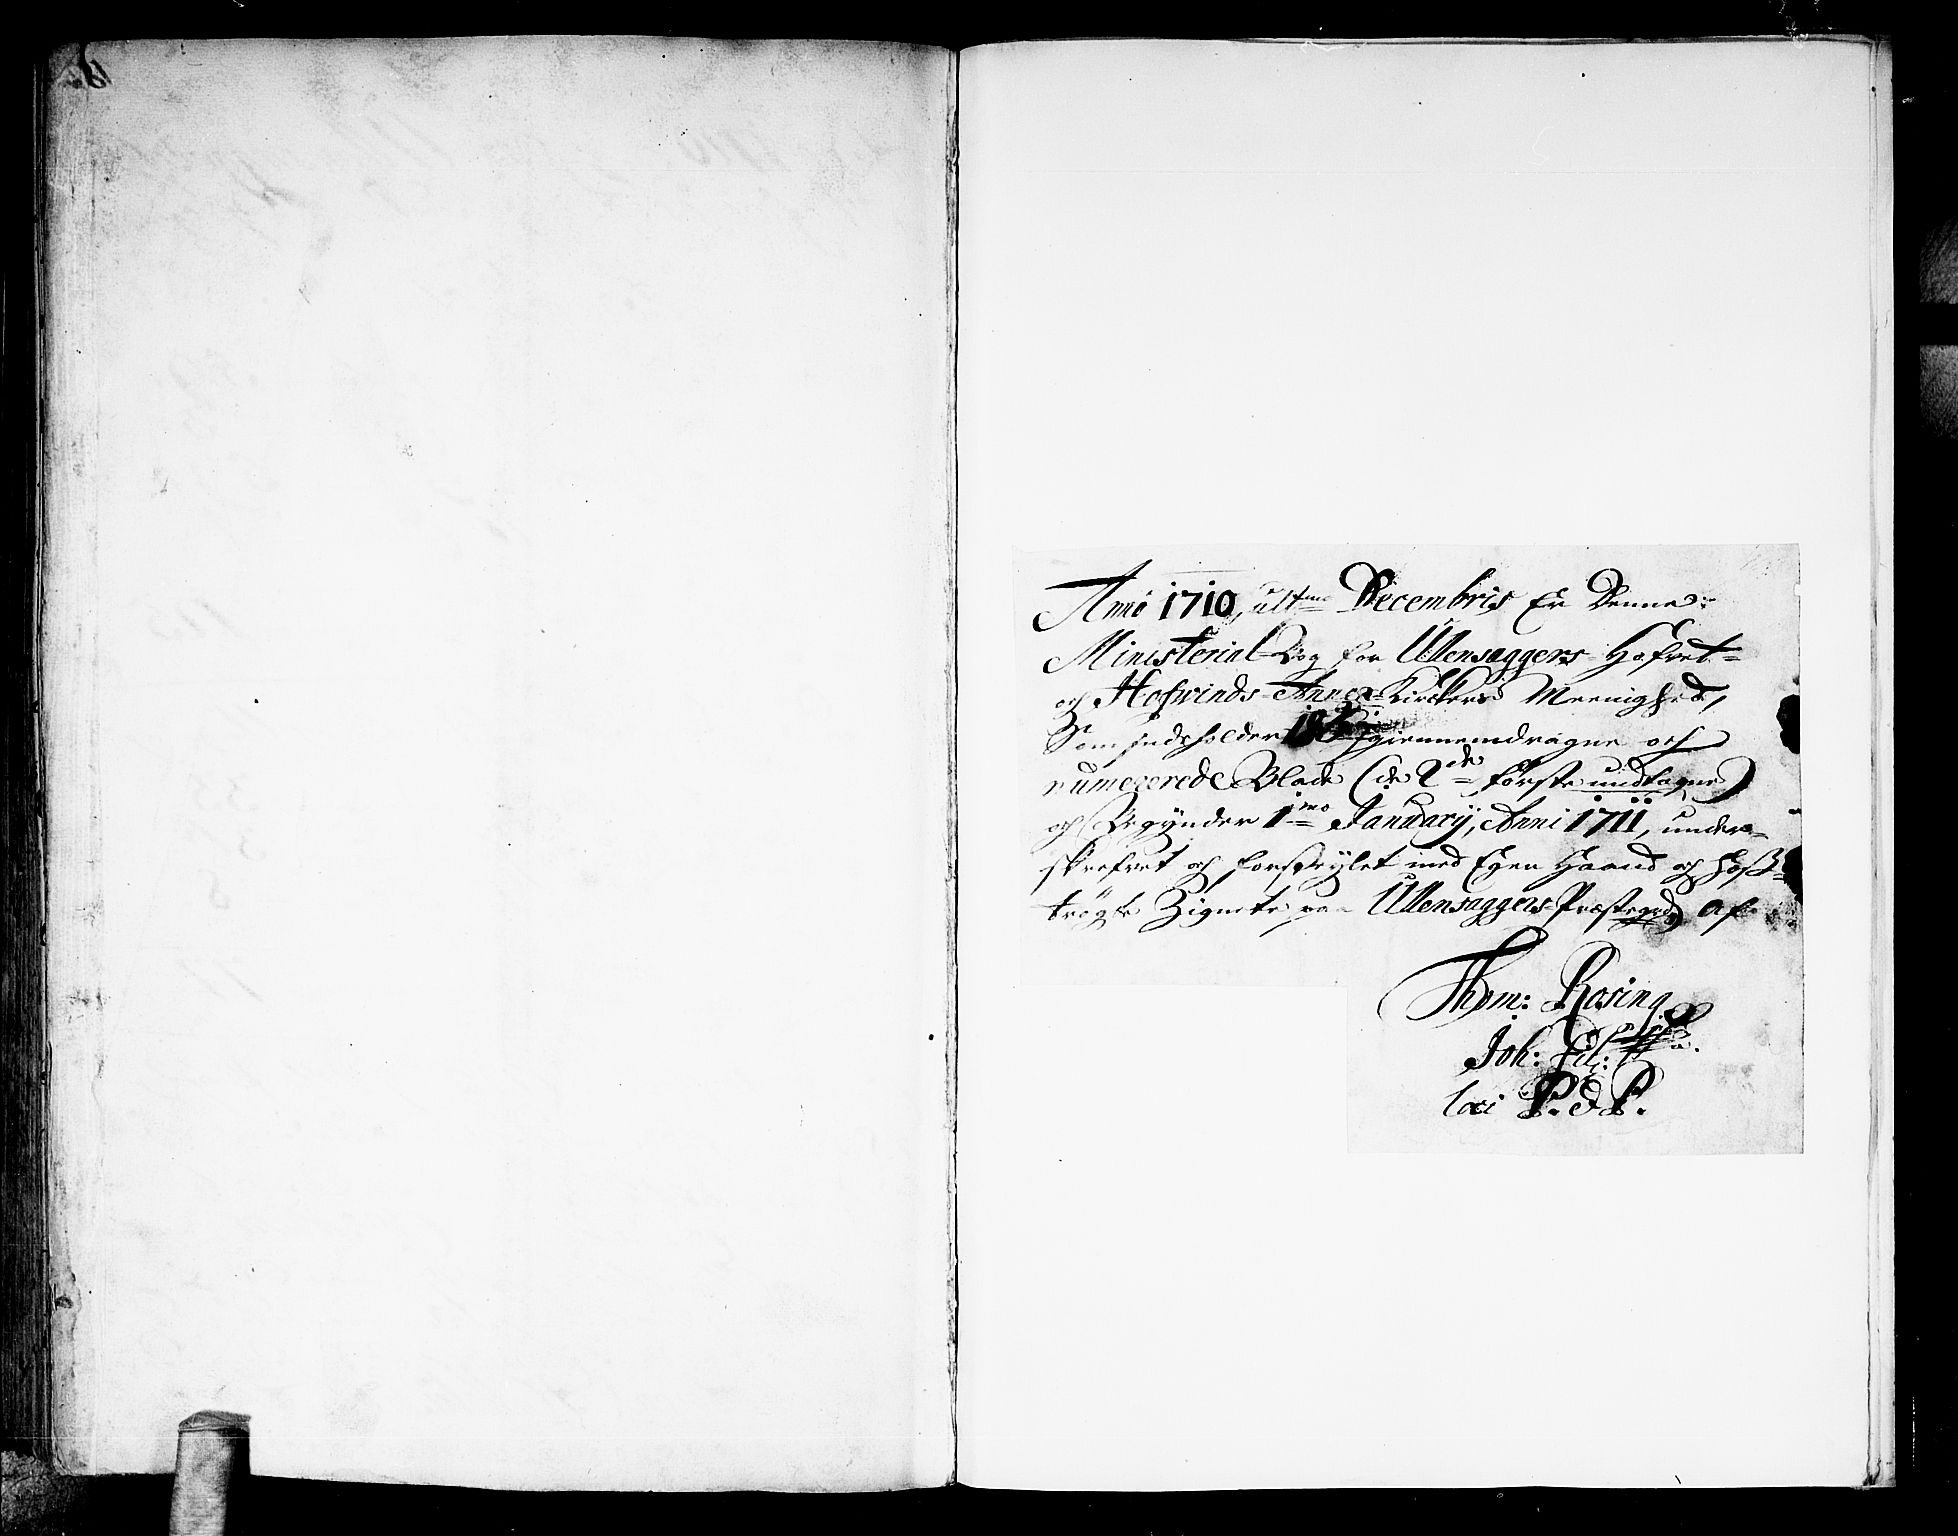 Anno 1710, ult:mo Decembris Er Denne
Ministerial Bog for Ullensaggers Hofvet-
och Hofwinds Annex-Kirckers Meenighed,
Som indeholder giennemdragne och
numererede Blade (de 2de første undtagne)
och Begynder 1:mo Januarij, Anni 1711, under-
skrefvet och forseylet med Egen Haand och hoß-
trögte Zignete paa Ullensaggers Præstegrd, Af
Thom: Rosing
Joh: Fil:
loci P. & P.